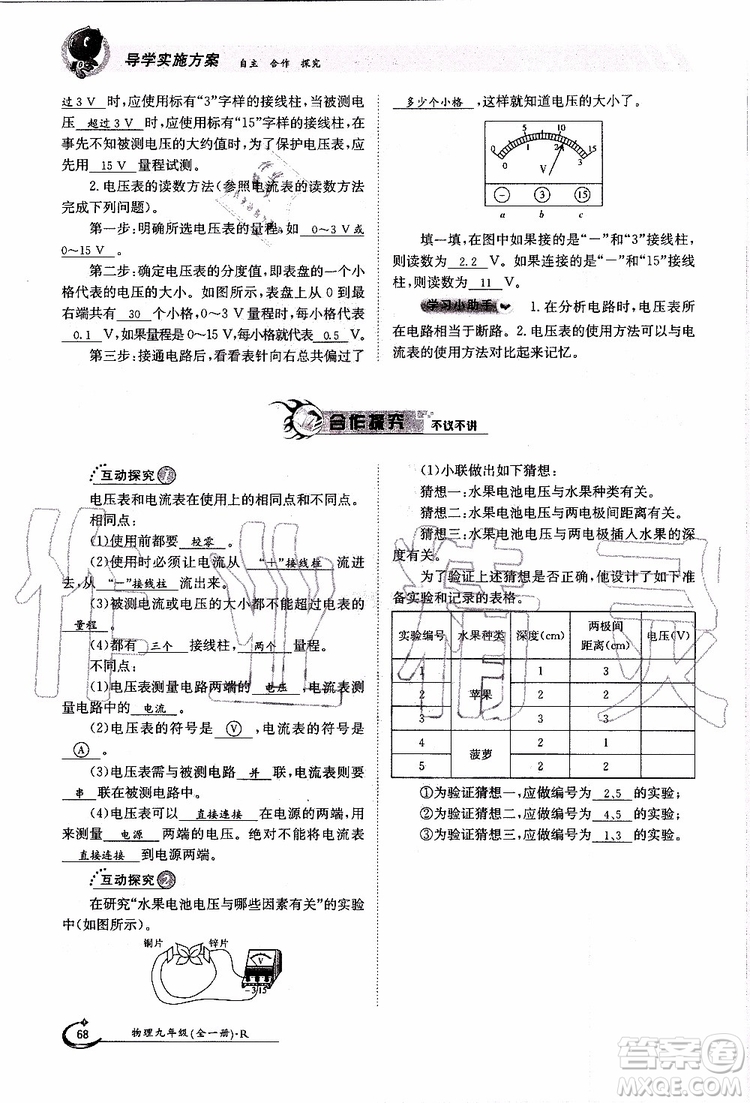 导学实施方案 自主 合作 探究
过3 V 时,应使用标有“3”字样的接线柱,当被测电
压 超过3 V 时,应使用标有“15”字样的接线柱,在
事先不知被测电压的大约值时,为了保护电压表,应
先用 15 V 量程试测。
2. 电压表的读数方法(参照电流表的读数方法
完成下列问题)。
第一步:明确所选电压表的量程,如 0~3 V或
0~15 V 。
第二步:确定电压表的分度值,即表盘的一个小
格代表的电压的大小。如图所示,表盘上从 0 到最
右端共有 30 个小格,0~3 V 量程时,每小格就代表
0.1 V,如果量程是 0~15 V,每小格就代表 0.5 V。
第三步:接通电路后,看看表针向右总共偏过了
多少个小格 ,这样就知道电压的大小了。
0 5 10 15
0 1 2 3
V
− 3 15
a b c
填一填,在图中如果接的是“−”和“3”接线柱,
则读数为 2.2 V。如果连接的是“−”和“15”接线柱,
则读数为 11 V。
学习小助手 1. 在分析电路时,电压表所
在电路相当于断路。2. 电压表的使用方法可以与电
流表的使用方法对比起来记忆。
合作探究 不议不讲
互动探究 1
电压表和电流表在使用上的相同点和不同点。
相同点:
(1)使用前都要 校零 。
(2)使用时必须让电流从 “+”接线柱 流进
去,从 “−”接线柱 流出来。
(3)被测电流或电压的大小都不能超过电表的
量程 。
(4)都有 三个 接线柱, 两个 量程。
不同点:
(1)电压表测量电路两端的 电压 ,电流表测
量电路中的 电流 。
(2)电压表的符号是 V ,电流表的符号是
A 。
(3)电压表需与被测电路 并 联,电流表需
串 联在被测电路中。
(4)电压表可以 直接连接 在电源的两端,用
来测量 电源 两端的电压。绝对不允许将电流表
直接连接 到电源两端。
互动探究 2
在研究“水果电池电压与哪些因素有关”的实验
中(如图所示)。
铜片 锌片
V
−3/15
(1)小联做出如下猜想:
猜想一:水果电池电压与水果种类有关。
猜想二:水果电池电压与两电极间距离有关。
猜想三:水果电池电压与两电极插入水果的深
度有关。
为了验证上述猜想是否正确,他设计了如下准
备实验和记录的表格。
实验编号 水果种类 深度(cm) 两极间距离(cm) 电压(V)
1 苹果 1 3
2 2 3
3 3 3
4 菠萝 2 2
5 2 3
①为验证猜想一,应做编号为 2、5 的实验;
②为验证猜想二,应做编号为 4、5 的实验;
③为验证猜想三,应做编号为 1、3 的实验。
68 物理九年级(全一册)·R
作业精灵
答案圈
MXQE.COM